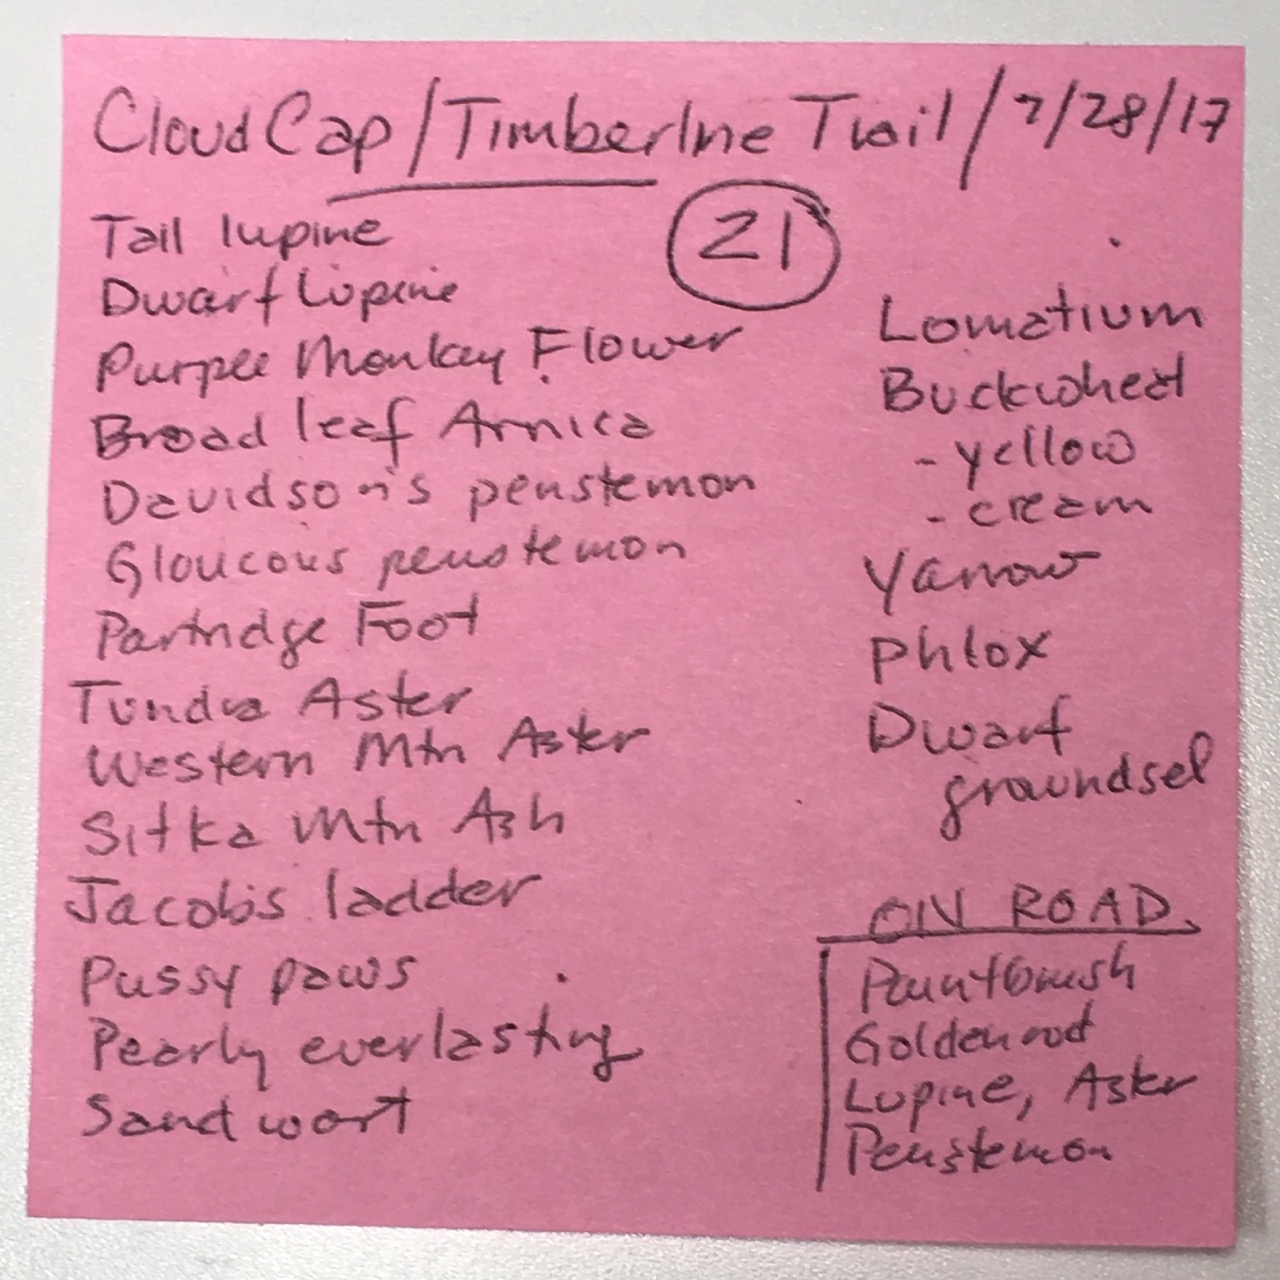 Cloud Cap / Timberlne Trail / 7/28/17
21
Tall lupine
Dwarf Lupine
Purple Monkey Flower
Broad leaf Arnica
Davidson's penstemon
Gloucous penstemon
Partridge Foot
Tundra Aster
Western Mtn Aster
Sitka Mtn Ash
Jacobs ladder
Pussy paws
Pearly everlasting
Sand wort
Lomatium
Buckwheat
- yellow
- cream
Yarrow
Phlox
Dwarf
groundsel
ON ROAD.
Paintbrush
Goldenrod
Lupine, Aster
Penstemon